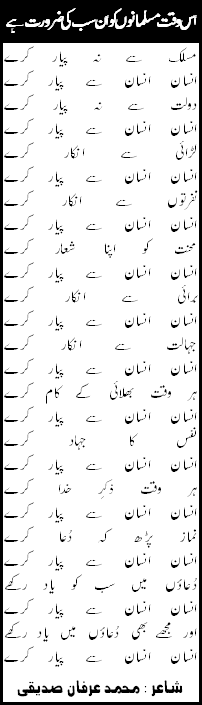 اس وقت مسلمانوں کو ان سب کی ضرورت ہے
مسلک سے نہ پیار کرے
انسان انسان سے پیار کرے
دولت سے نہ پیار کرے
انسان انسان سے پیار کرے
لڑائی سے انکار کرے
انسان انسان سے پیار کرے
نفرتوں سے انکار کرے
انسان انسان سے پیار کرے
محنت کو اپنا شعار کرے
انسان انسان سے پیار کرے
برائی سے انکار کرے
انسان انسان سے پیار کرے
جہالت سے انکار کرے
انسان انسان سے پیار کرے
ہر وقت بھلائی کے کام کرے
انسان انسان سے پیار کرے
نفس کا جہاد کرے
انسان انسان سے پیار کرے
ہر وقت ذکرِ خدا کرے
انسان انسان سے پیار کرے
نماز پڑھ کہ دُعا کرے
انسان انسان سے پیار کرے
دُعاؤں میں سب کو یاد رکھے
انسان انسان سے پیار کرے
اور مجھے بھی دُعاؤں میں یاد رکھے
انسان انسان سے پیار کرے
شاعر : محمد عرفان صدیقی